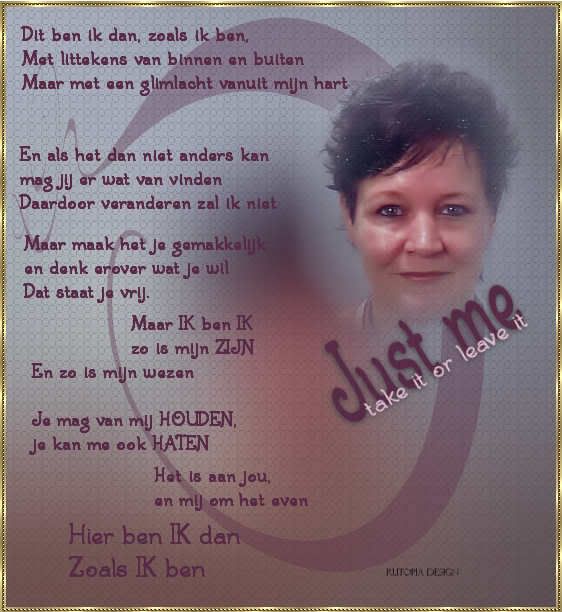 Dit ben ik dan, zoals ik ben,
Met littekens van binnen en buiten
Maar met een glimlacht vanuit mijn hart
En als het dan niet anders kan
mag jij er wat van vinden
Daardoor veranderen zal ik niet
Maar maak het je gemakkelijk
en denk erover wat je wil
Dat staat je vrij.
Maar IK ben IK
zo is mijn ZIJN
En zo is mijn wezen
Just me
take it or leave it
Je mag van mij HOUDEN,
je kan me ook HATEN
Het is aan jou,
en mij om het even
Hier ben IK dan
Zoals IK ben
DESIGN